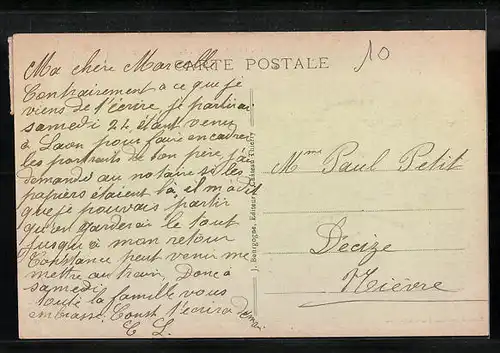 10
CARTE POSTALE
Ma chère Marcelle
Contrairement à ce que je
viens de t'écrire je partirai
samedi 24 étant venu
à Laon pour faire encadrer
les portraits de ton père j'ai
demandé au notaire si les
papiers étaient là, il m'a dit
que je pouvais partir
qu'on garderait le tout
jusqu'à mon retour
Constance peut venir me
mettre au train, Donc à
samedi
toute la famille vous
embrasse. Const t'écrira
C L.
J. Bourgogne, Editeur, Château-Thierry
Mme Paul Petit
Decize
Nièvre